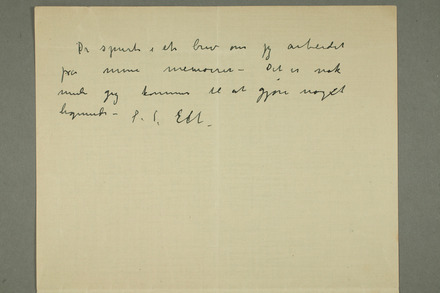 Du spurte i et brev om jeg arbeidet
på mine memoirer – Det er nok
jeg kommer til at gjøre noget
lignende – E M.